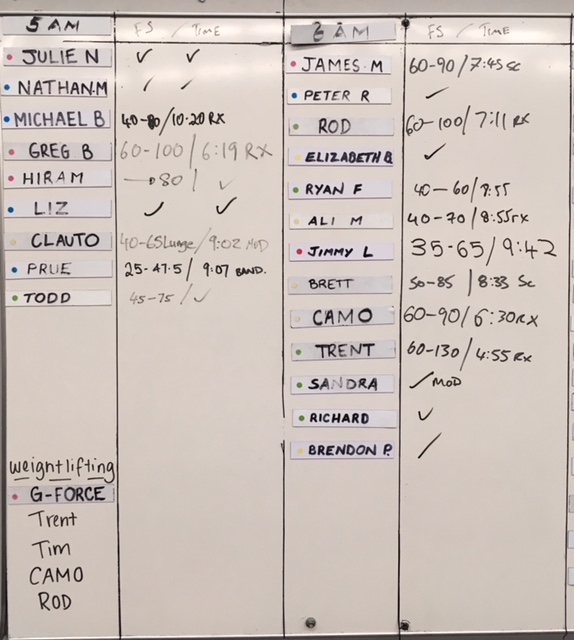 5 AM FS / TIME
JULIE N ✓ ✓
NATHAN.M ✓ ✓
MICHAEL B 40-80/10:20 RX
GREG B 60-100/6:19 RX
HIRAM →80/ ✓
LIZ ✓ ✓
CLAUTO 40-65Lunge/9:02 MOD
PRUE 25-47.5/9:07 BAND.
TODD 45-75/✓
weightlifting
G-FORCE
Trent
Tim
CAMO
ROD
6 AM FS / TIME
JAMES M 60-90/7:45 Sc
PETER R ✓
ROD 60-100/7:11 RX
ELIZABETH B ✓
RYAN F 40-60/8:55
ALI M 40-70/8:55rx
JIMMY L 35-65/9:42
BRETT 50-85/8:33 Sc
CAMO 60-90/6:30RX
TRENT 60-130/4:55 Rx
SANDRA ✓ MOD
RICHARD ✓
BRENDON P. ✓